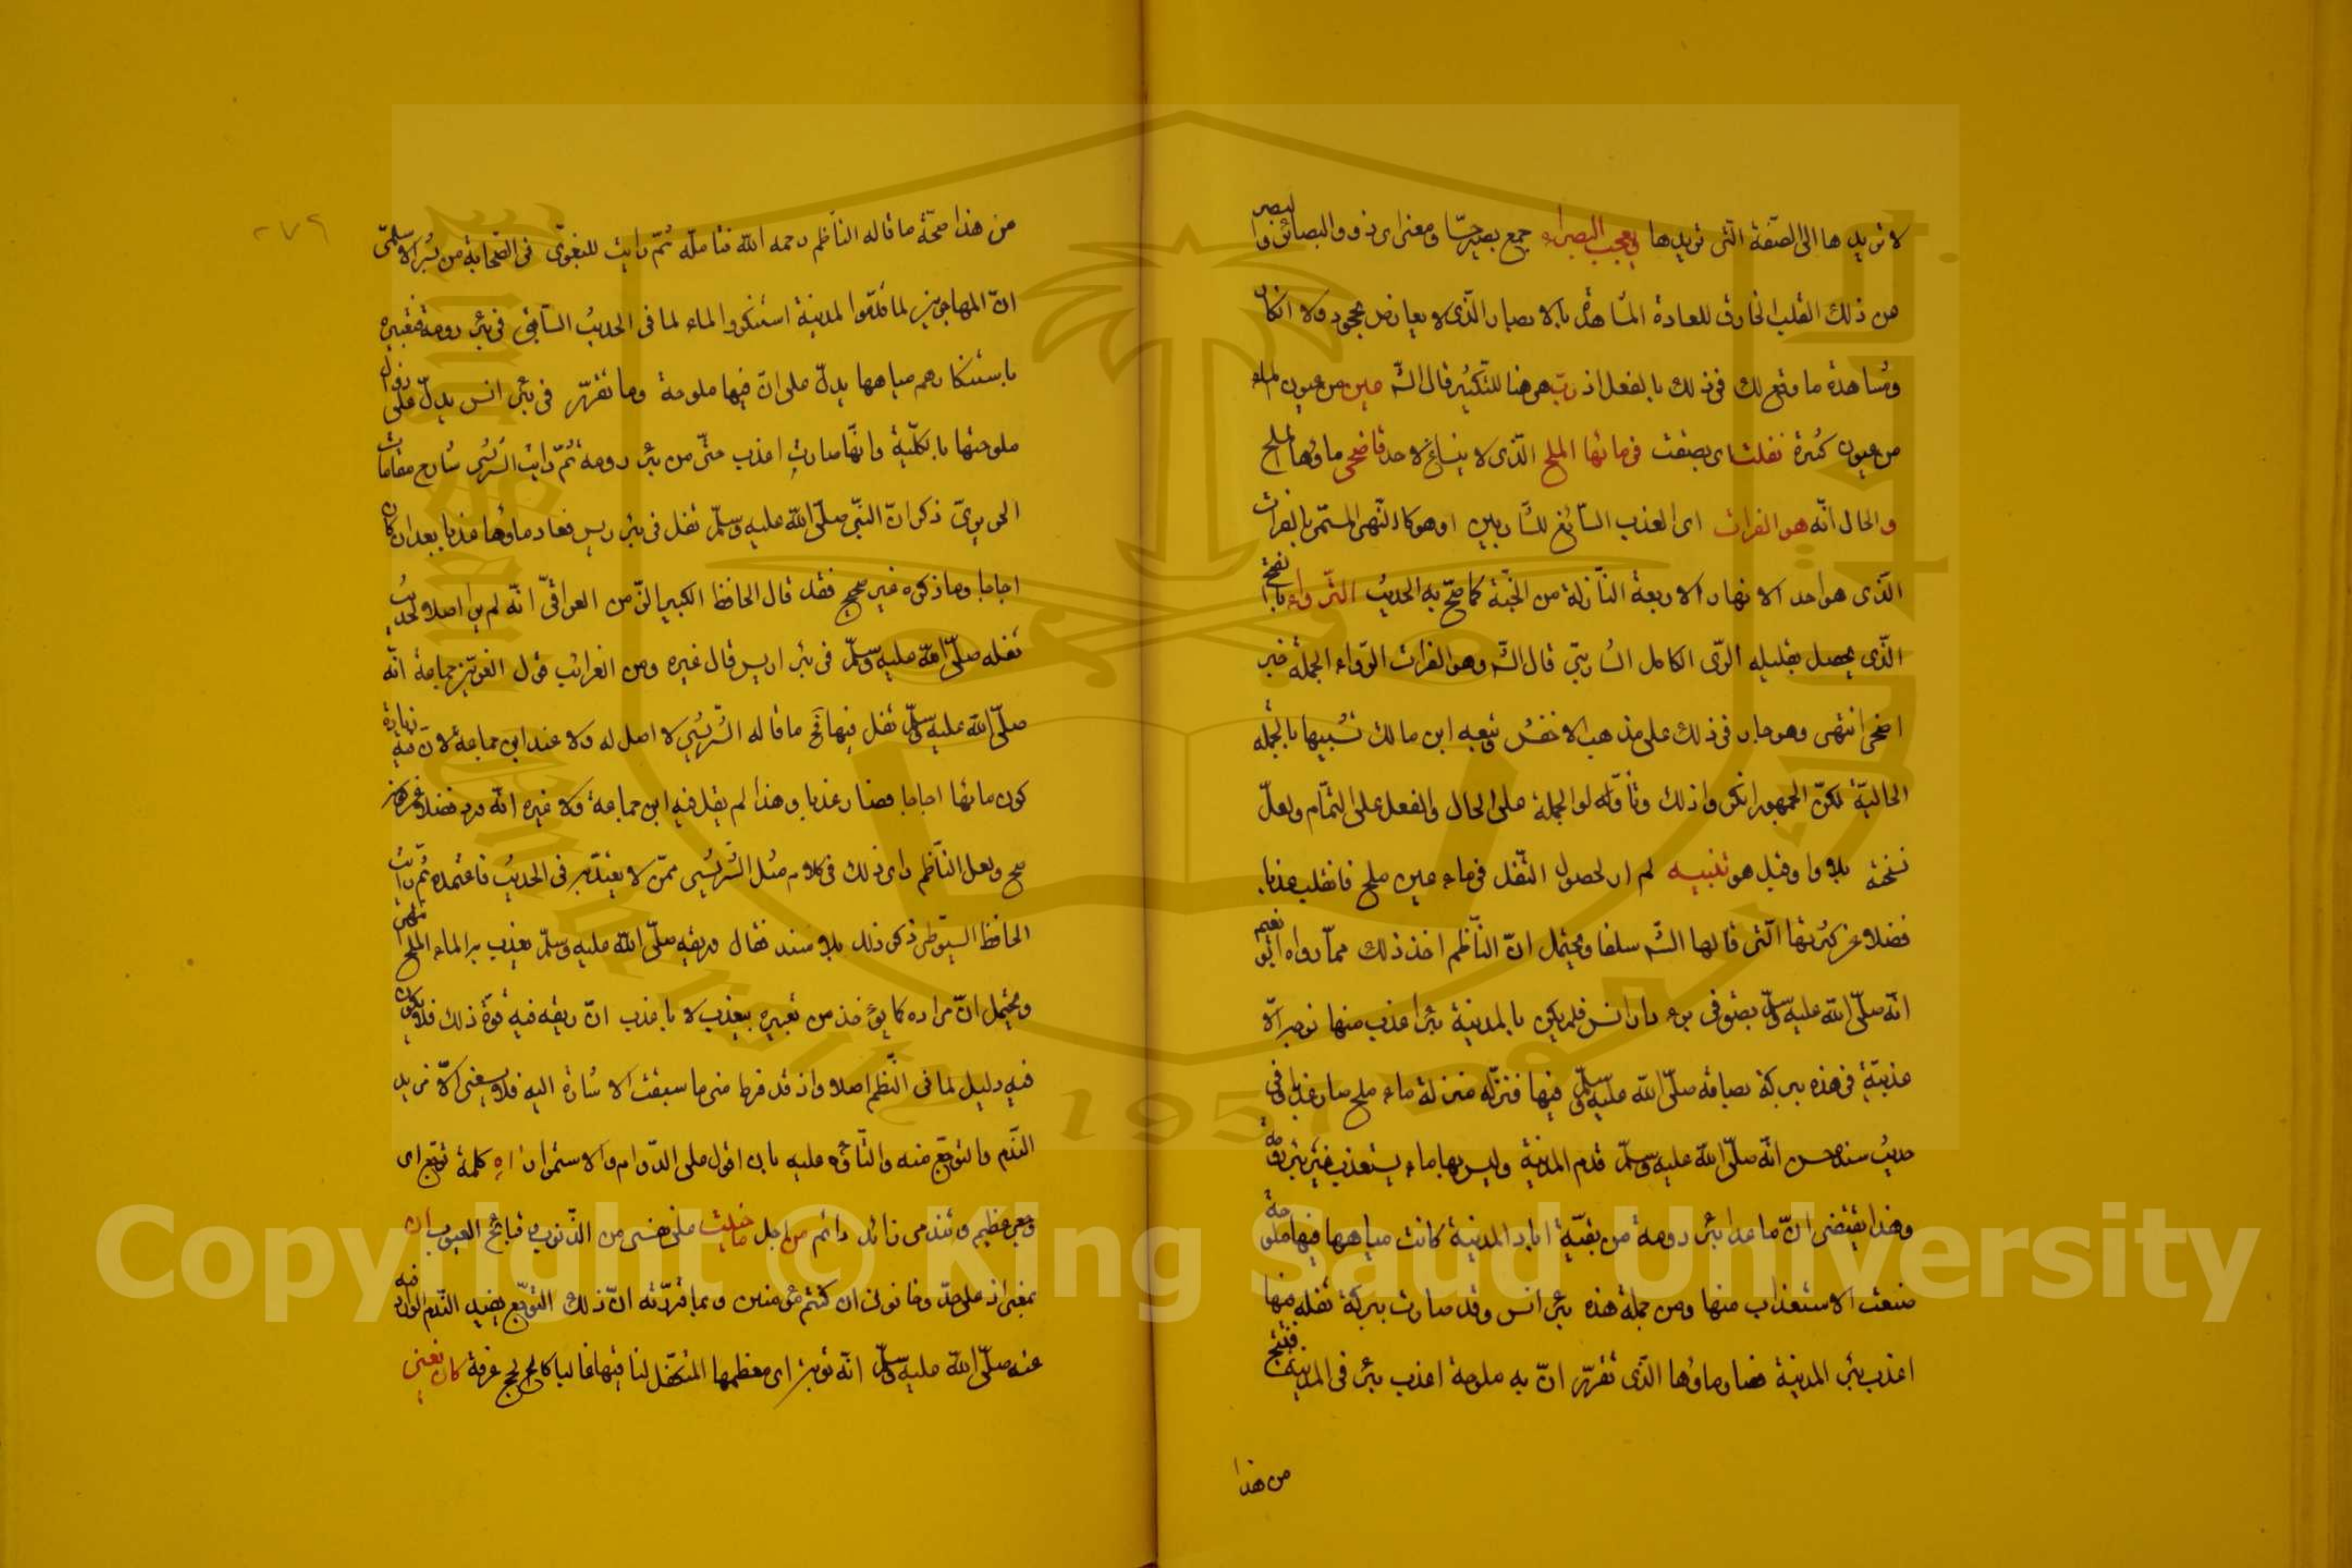 لا تريدها الى الصفة التى تريدها ويعجب البصراء جمع بصير حسا ومعنى اى ذوو البصائر والبصر
من ذلك القلب الخارق للعادة المشاهد بالابصار الذى لا يعارض بجحود ولا انكار
ومشاهدة ما وقع لك فى ذلك بالفعل اذ رب هى هنا للتكثير قال الش عين من عيون الماء
من عيون كثيرة تفلت اى بصقت فى مائها الملح الذى لا ينساغ لاحد فاضحى ماؤها الملح
والحال انه هو الفرات اى العذب السائغ للشاربين او هو كالنهر المسمى بالفرات
الذى هو احد الانهار الاربعة النازلة من الجنة كما صح به الحديث الرواء بالفتح
الذى يحصل بقليله الرى الكامل لشاربى قال الش وهو الفرات الرواء الجملة خبر
اضحى انتهى وهو جار فى ذلك على مذهب الاخفش وتبعه ابن مالك تشبيها بالجملة
الحالية لكن الجمهور انكروا ذلك وتاولوا الجملة على الحال والفعل على التمام ولعل
نسخته بلا واو قبل هو تنبيه لم ار لحصول التفل فى ماء عين ملح فانقلب عذبا
فضلا عن كثرتها التى قالها الش سلفا ويحتمل ان الناظم اخذ ذلك مما رواه ابو نعيم
انه صلى الله عليه وسلم بصق فى بئر دار انس فلم يكن بالمدينة بئر اعذب منها
عذبية فى هذه ببركة بصاقه صلى الله عليه وسلم فيها فنزله منزلة ماء ملح صار عذبا وفى
حديث سنده حسن انه صلى الله عليه وسلم قدم المدينة وليس بها ماء يستعذب غير بئر رومة
وهذا يقتضى ان ما عدا بئر رومة من بقية ابار المدينة كانت مياهها فيها ملوحة
منعت الاستعذاب منها ومن جملة هذه بئر انس وقد صارت ببركة تفله منها
اعذب بئر المدينة فصار ماؤها الذى تقرر ان به ملوحة اعذب بئر فى المدينة فنتج
من هذا
من هذا صحة ما قاله الناظم رحمه الله فتامله ثم رايت للبغوى فى الصحابة من بشر الاسلمى
ان المهاجرين لما قدموا المدينة استنكروا الماء لما فى الحديث السابق فى بئر رومة فتعبيره
باستنكارهم مياهها يدل على ان فيها ملوحة وما تقرر فى بئر انس يدل على زوال
ملوحتها بالكلية وانها صارت اعذب حتى من بئر رومة ثم رايت الشريشى شارح مقامات
الحريرى ذكر ان النبى صلى الله عليه وسلم تفل فى بئر اريس فعاد ماؤها عذبا بعد ان كان
اجاجا وما ذكره غير صحيح فقد قال الحافظ الكبير الزين العراقى انه لم ير اصلا لحديث
تفله صلى الله عليه وسلم فى بئر اريس قال غيره ومن الغرائب قول العز بن جماعة انه
صلى الله عليه وسلم تفل فيها فح ما قاله الشريشى لا اصل له ولا عند ابن جماعة لان فيه زيادة
كون مائها اجاجا فصار عذبا وهذا لم يقل فيه ابن جماعة ولا غيره انه ورد فضلا عن كونه
صح ولعل الناظم راى ذلك فى كلام مثل الشريشى ممن لا يعتد به فى الحديث فاعتمده ثم رايت
الحافظ السيوطى ذكر ذلك بلا سند فقال وريقه صلى الله عليه وسلم يعذب به الماء الملح انتهى
ويحتمل ان مراده كما يؤخذ من تعبيره بيعذب لا باعذب ان ريقه فيه قوة ذلك فلا يكون
فيه دليل لما فى النظم اصلا واذ قد فرط منى ما سبقت الاشارة اليه فلا يسعنى الا مزيد
الندم والتوجع منه والتاوه عليه بان اقول على الدوام والاستمرار اه كلمة توجع اى
وجعى عظيم وتندمى زائد دائم من اجل ما جنيت على نفسى من الذنوب وقبائح العيوب ان
بمعنى اذ على حد وخافون ان كنتم مؤمنين وبما قررته ان ذلك التوجع يفيد الندم الوارد فيه
عنه صلى الله عليه وسلم انه توبة اى معظمها المتكفل لنا فيها غالبا كالحج عرفة كان يغنى